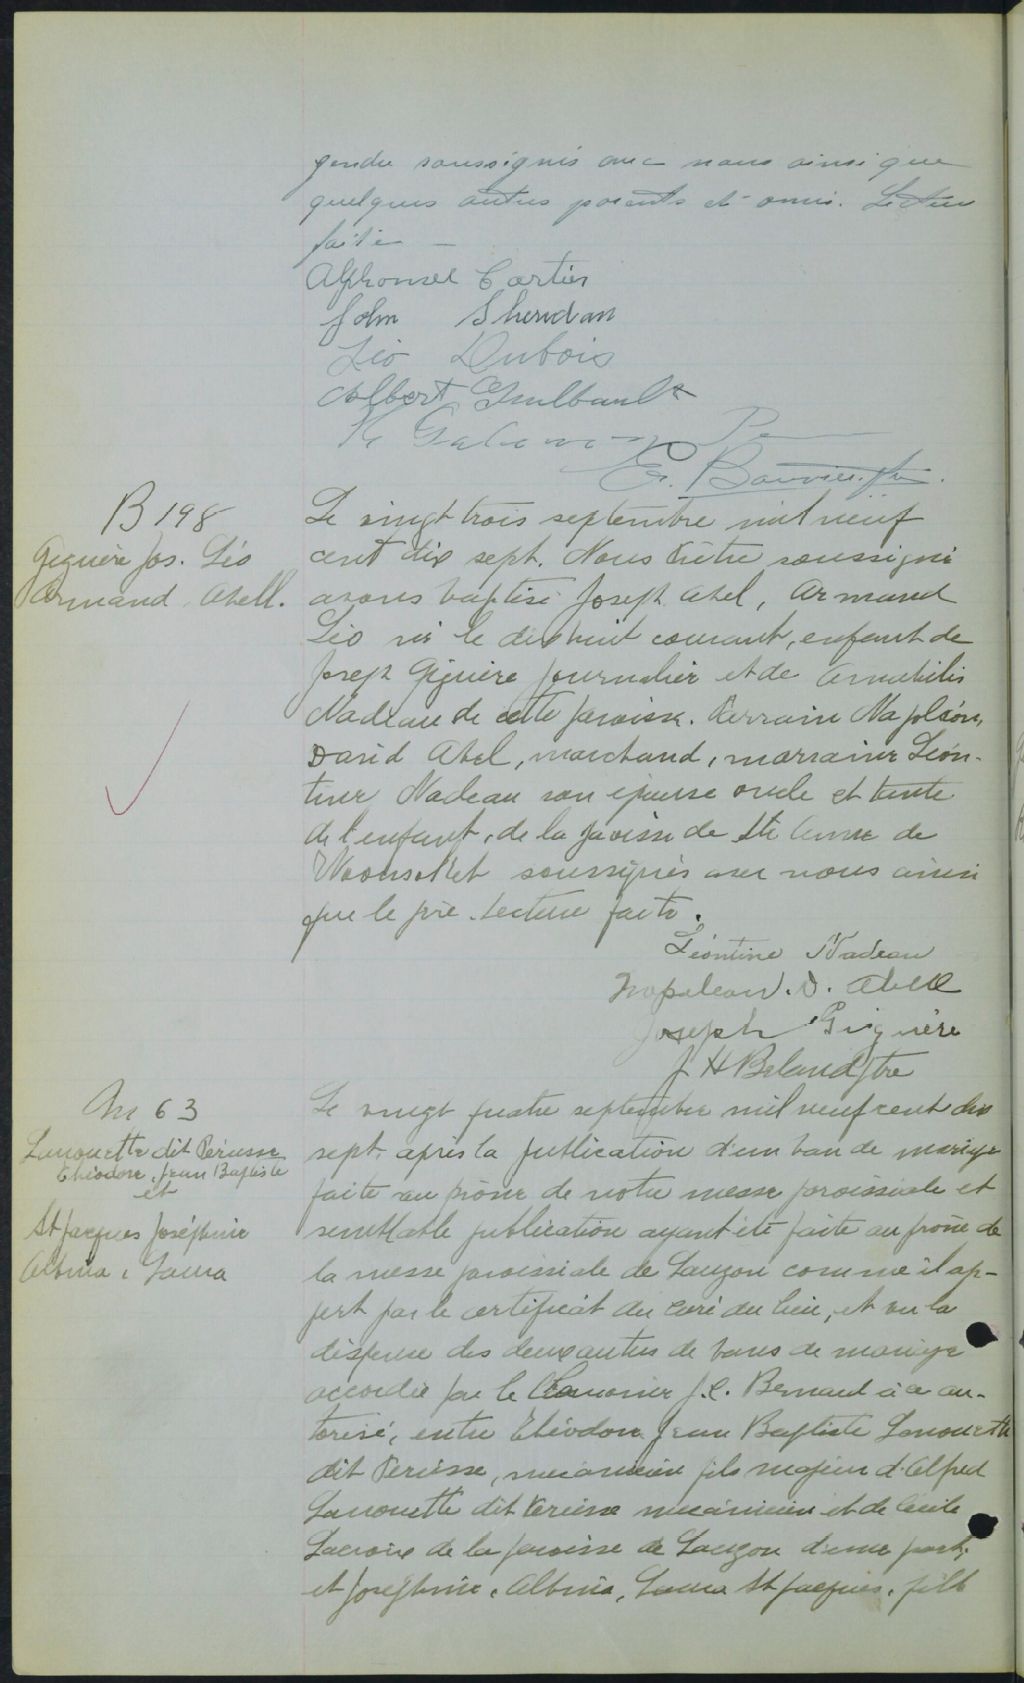 gendu soussignés avec nous ainsi que
quelques autres parents et amis. Lecture
faite
Alphonse Cartier
John Sheridan
Léo Dubois
Albert Guilbault
B 198
Giguère Jos. Léo
Armand Abell.
Le vingt trois septembre mil neuf
cent dix sept. Nous Prêtre soussigné
avons baptisé Joseph Abel, Armand
Léo né le dix huit courant, enfant de
Joseph Giguère journalier et de Amabilis
Nadeau de cette paroisse. Parrain Napoléon,
David Abel, marchand, marraine Léon-
tine Nadeau son épouse oncle et tante
de l'enfant, de la paroisse de Ste Anne de
Woonsocket soussignés avec nous ainsi
que le père. Lecture faite.
Léontine Nadeau
Napoleon. D. Abell
Joseph Giguère
J H Beland Ptre
M 63
Lanouette dit Périsse
Théodore, Jean Baptiste
et
St Jacques Joséphine
Albina, Laura
Le vingt quatre septembre mil neuf cent dix
sept, après la publication d'un ban de mariage
faite au prône de notre messe paroissiale et
semblable publication ayant été faite au prône de
la messe paroissiale de Lauzon comme il ap-
pert par le certificat du curé du lieu, et vu la
dispense des deux autres de bans de mariage
accordée par le Chanoine J. C. Bernard à ce au-
torisé, entre Théodore Jean Baptiste Lanouette
dit Périsse, mécanicien fils majeur d'Alfred
Lanouette dit Périsse mécanicien et de Cécile
Lacroix de la paroisse de Lauzon d'une part,
et Joséphine, Albina, Laura St Jacques, fille